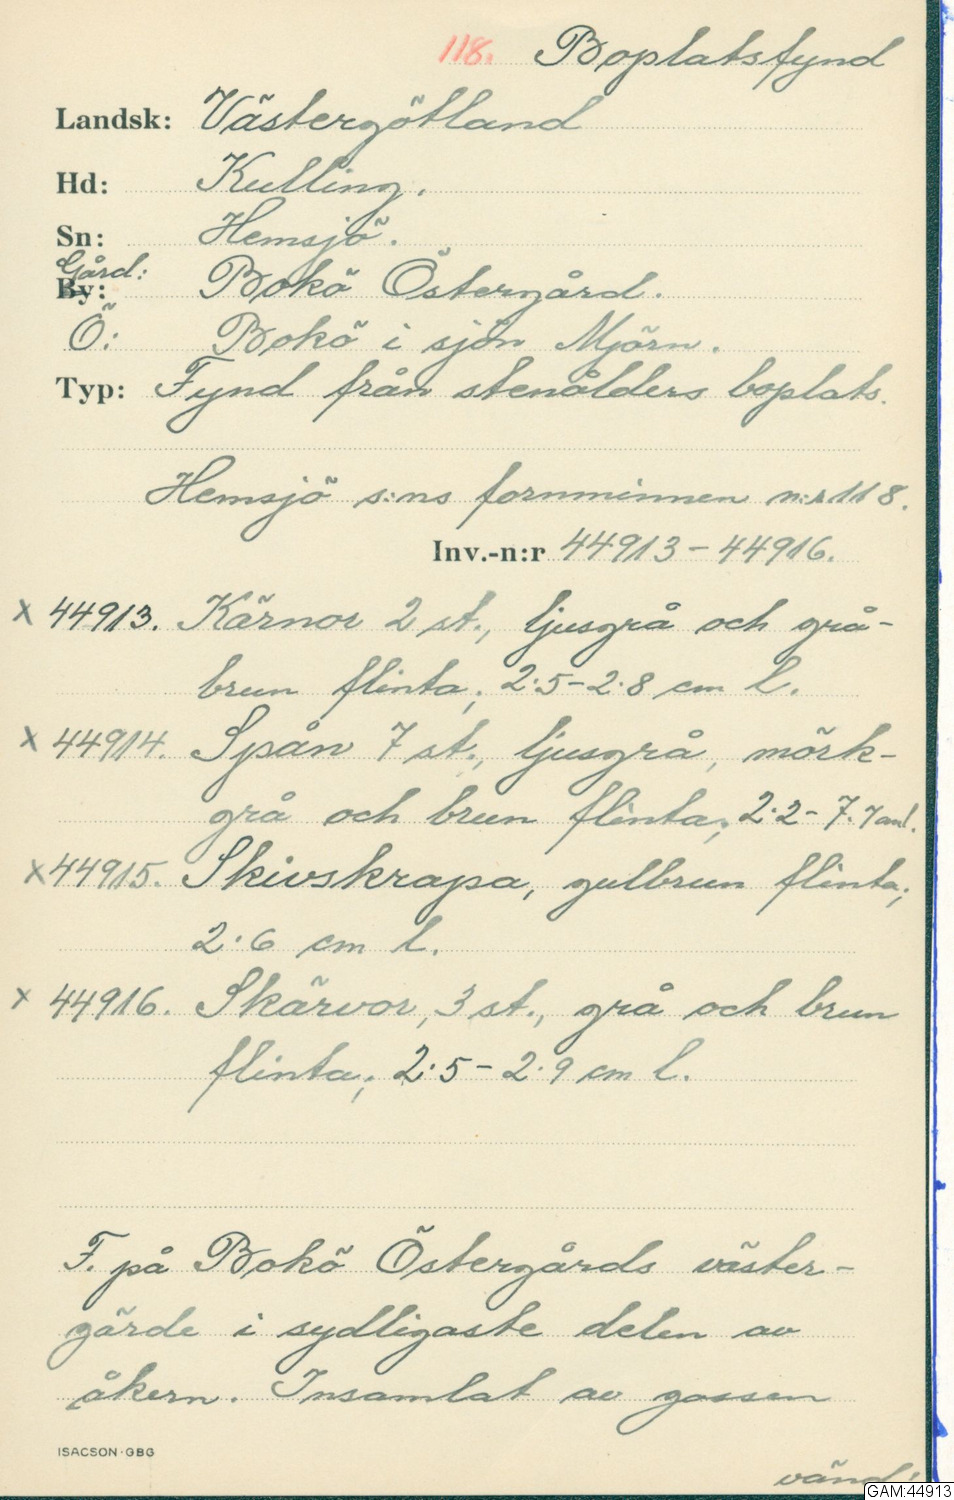 118. Boplatsfynd
Landsk: Västergötland
Hd: Kulling.
Sn: Hemsjö.
Gård:
By: Bokö Östergård.
Ö: Bokö i sjön Mjörn.
Typ: Fynd från stenålders boplats.
Hemsjö s:ns fornminnen n:r 118.
Inv.-n:r 44913-44916.
x 44913. Kärnor 2 st., ljusgrå och grå-
brun flinta; 2.5-2.8 cm l.
x 44914. Spån 7 st., ljusgrå, mörk-
grå och brun flinta; 2.2-7.7 cm l.
x 44915. Skivskrapa, gulbrun flinta;
2.6 cm l.
x 44916. Skärvor, 3 st., grå och brun
flinta; 2.5-2.9 cm l.
F. på Bokö Östergårds väster-
gärde i sydligaste delen av
åkern. Insamlat av gossen
ISACSON·GBG
vänd!
GAM:44913